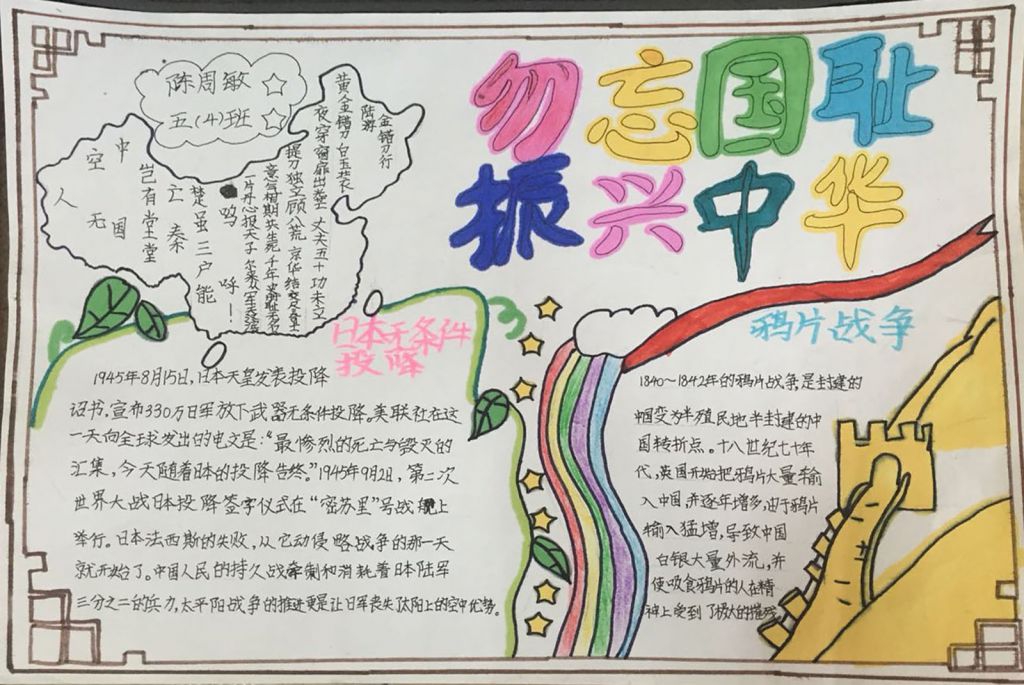 勿忘国耻
振兴中华
陈周敏
五(4)班
金错刀行
陆游
黄金错刀白玉装
夜穿窗扉出
丈夫五十功未立
提刀独立顾八荒
京华结交
意气相期共生死
千年史
一片丹心报天子
呜呼！
楚虽三户能
亡秦
岂有堂堂
中
空
国
无
人
日本无条件
投降
1945年8月15日,日本天皇发表投降
诏书,宣布330万日军放下武器无条件投降。美联社在这
一天向全球发出的电文是:“最惨烈的死亡与毁灭的
汇集,今天随着日本的投降告终。”1945年9月2日,第二次
世界大战日本投降签字仪式在“密苏里”号战舰上
举行。日本法西斯的失败,从它动侵略战争的那一天
就开始了。中国人民的持久战牵制和消耗着日本陆军
三分之二的兵力,太平阳战争的推进更是让日军丧失了太阳上的空中优势。
鸦片战争
1840～1842年的鸦片战争是封建的
中国变为半殖民地半封建的中
国转折点。十八世纪七十年
代,英国开始把鸦片大量输
入中国,并逐年增多,由于鸦片
输入猛增,导致中国
白银大量外流,并
使吸食鸦片的人在精
神上受到了极大的摧残